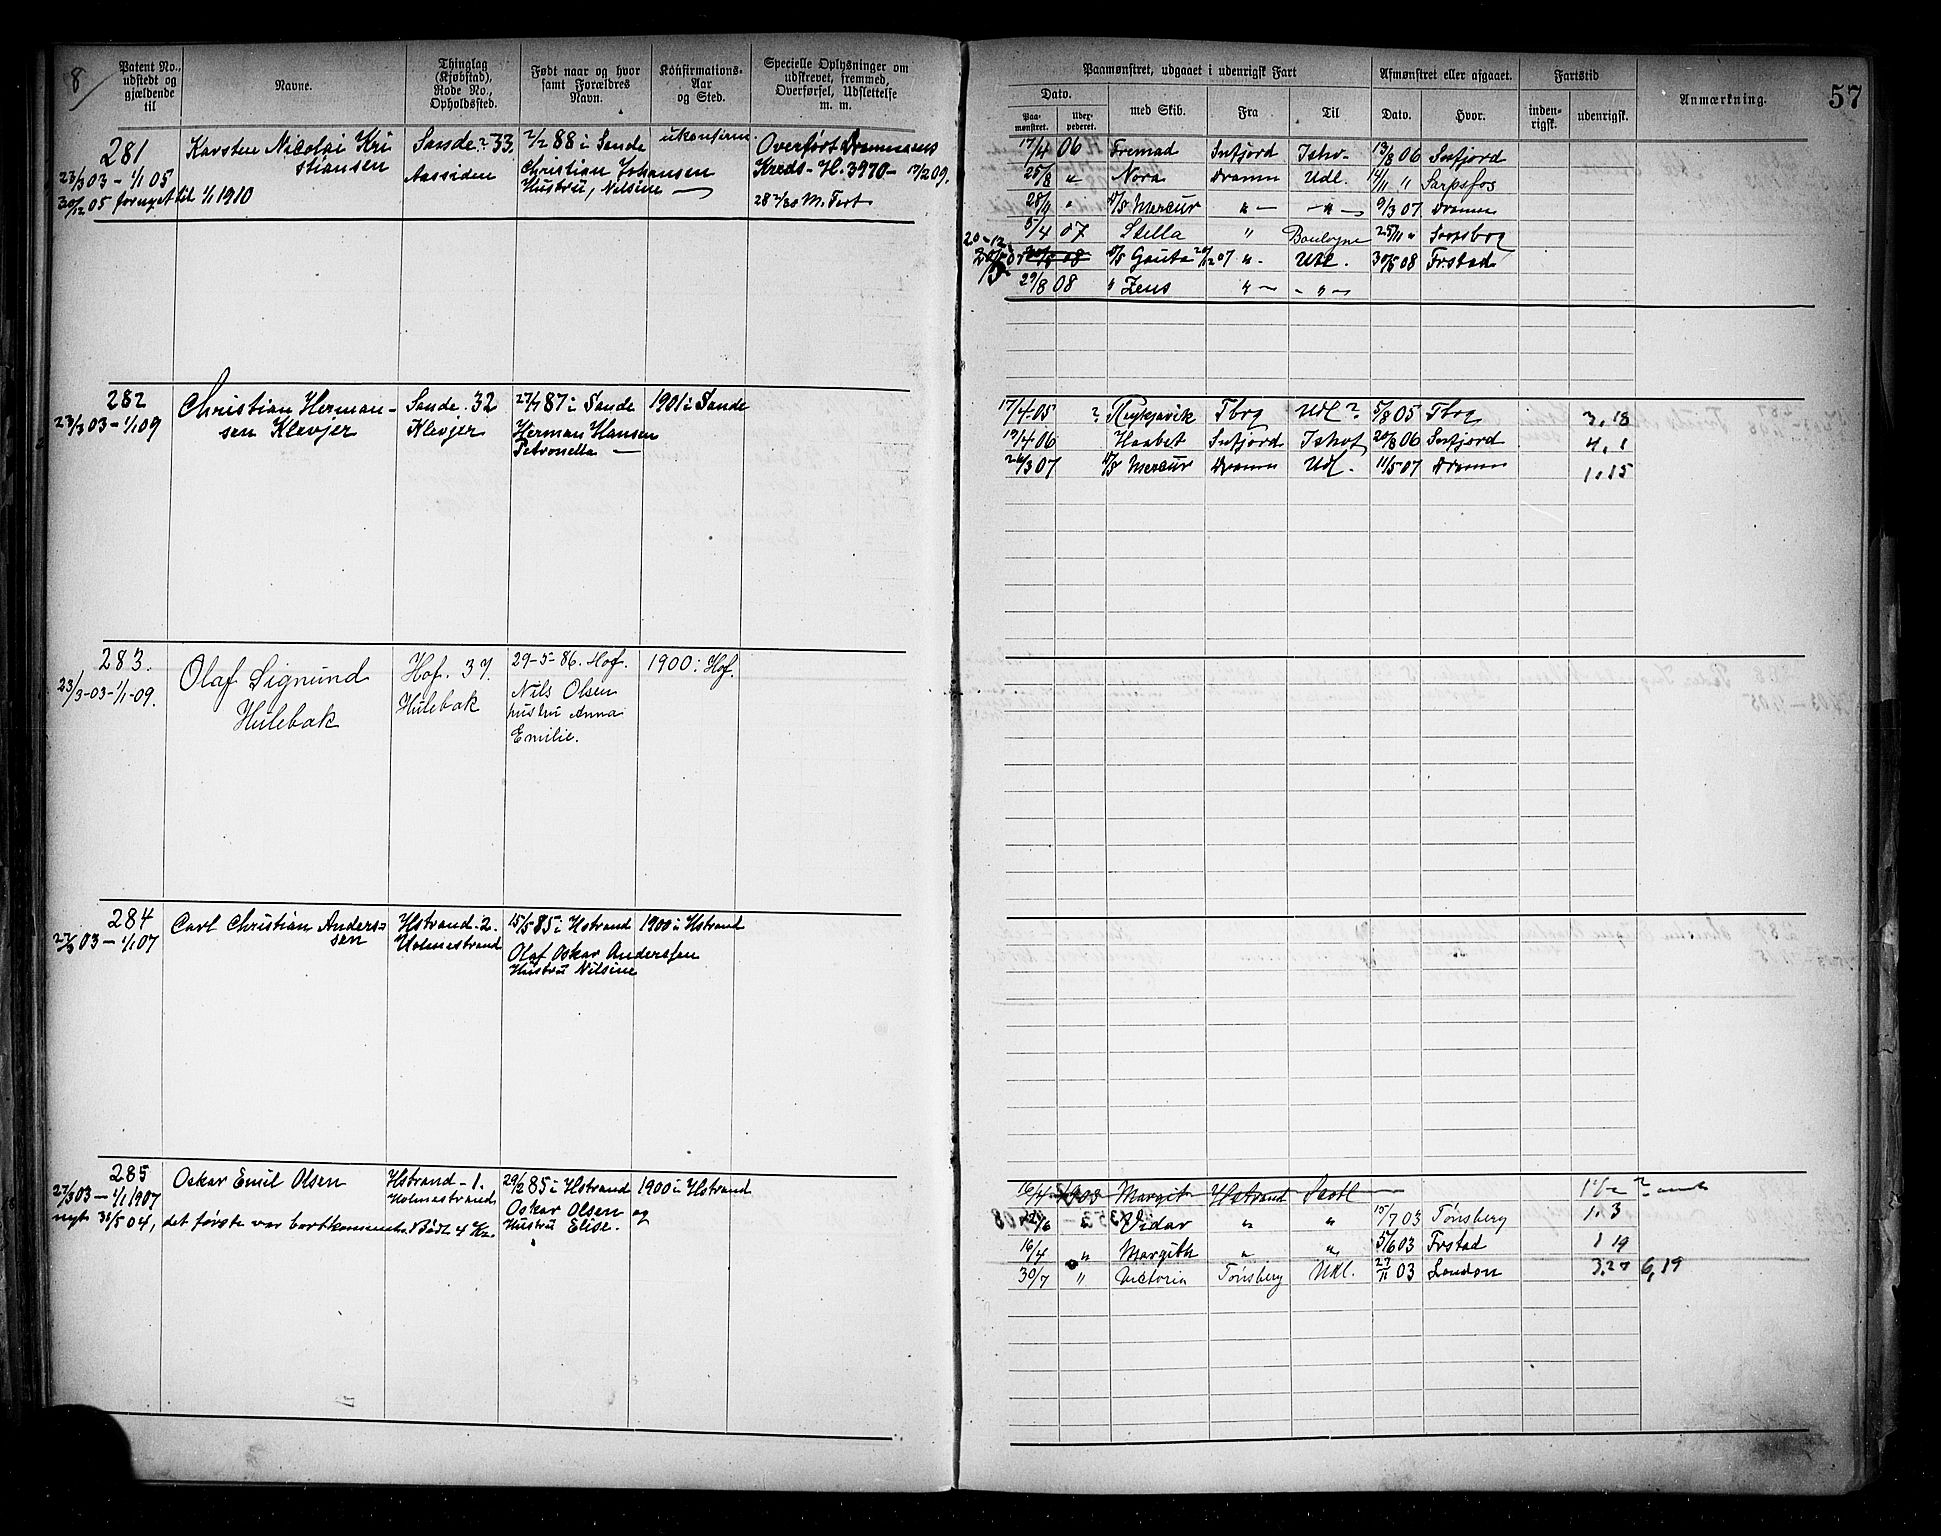 8
Patent No., udstedt og gjældende til
Navne.
Thinglag (Kjøbstad), Rode No., Opholdssted.
Født naar og hvor samt Forældres Navn.
Konfirmations-Aar og Sted.
Specielle Oplysninger om udskrevet, fremmed, Overførsel, Udslettelse m. m.
281
23/3 03 – 1/1 05
30/12 05 fornyet til 1/1 1910
Karsten Nicolai Kri
stiansen
Sande 33.
Aassiden
2/2 88 i Sande
Christian Johansen
Hustru, Nilsine —
ukonfirm.
Overført Drammens
Kreds - H. 3970 – 09.
282
23/3 03 – 1/1 09
Christian Herman-
sen Klevjer
Sande. 32
Klevjer
27/7 87 i Sande
Herman Hansen
Petronella —
1901 i Sande
283.
23/3-03-1/1-09.
Olaf Sigmund
Hulebak
Hof. 37.
Hulebak
29-5-86. Hof.
Nils Olsen
hustru Anna
Emilie.
1900 i Hof.
284
27/3 03 – 1/1 07
Carl Christian Anders-
sen
Hstrand - 2.
Holmestrand
15/5 85 i Hstrand
Olaf Oskar Anderssen
Hustru Nilsine
1900 i Hstrand
285
27/3 03 – 1/1 1907
nyt 31/5 04, det første var bortkommet. Bødt 4 Kr.
Oskar Emil Olsen
Hstrand - 1.
Holmestrand
29/2 85 i Hstrand
Oskar Olsen og
Hustru Elise.
1900 i Hstrand
57
Paamønstret, udgaaet i udenrigsk Fart
Afmønstret eller afgaaet.
Fartstid
Anmærkning.
Dato.
Paa-mønstret.
Uder-pederet.
med Skib.
Fra
Til
Dato.
Hvor.
inden-rigsk.
udenrigsk.
17/4 06 Fremad Snfjord Ishv- 13/8 06 Snfjord
25/8 " Nora Dramn Udl. 14/11 " Sarpsfos
28/11 " D/S Mercur " — " — 9/3 07 Dramn
5/4 07 Stella " Boulogne 25/11 " Sarpsborg
D/S Gauta 07 " Utl. 30/5 08 Frstad
29/8 08 " Zeus " — " —
17/4 05 ? Reykjavik Tbrg Udl ? 5/8 05 Tbrg 3,18
19/4 06 Haabet Snfjord Ishvf 20/8 06 Snfjord 4,1
26/3 07 D/S Mercur Dramn Udl. 11/5 07 Dramn 1,15
16/4 1903 Margit Hstrand
6 " Vidar " " 15/7 03 Tønsberg 1.3
16/4 " Margith " " 5/6 03 Frstad 1 19
30/7 " Victoria Tønsberg Udl. 27/11 03 London 3,27 6,19